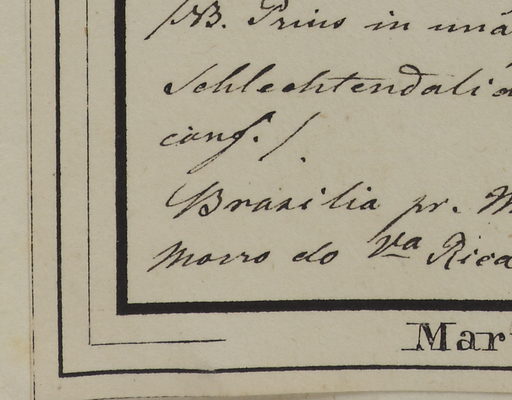 /NB. Prius in una
Schlechtendalia
conf. /.
Brasilia pr. M
Morro do Va Rica
Mar